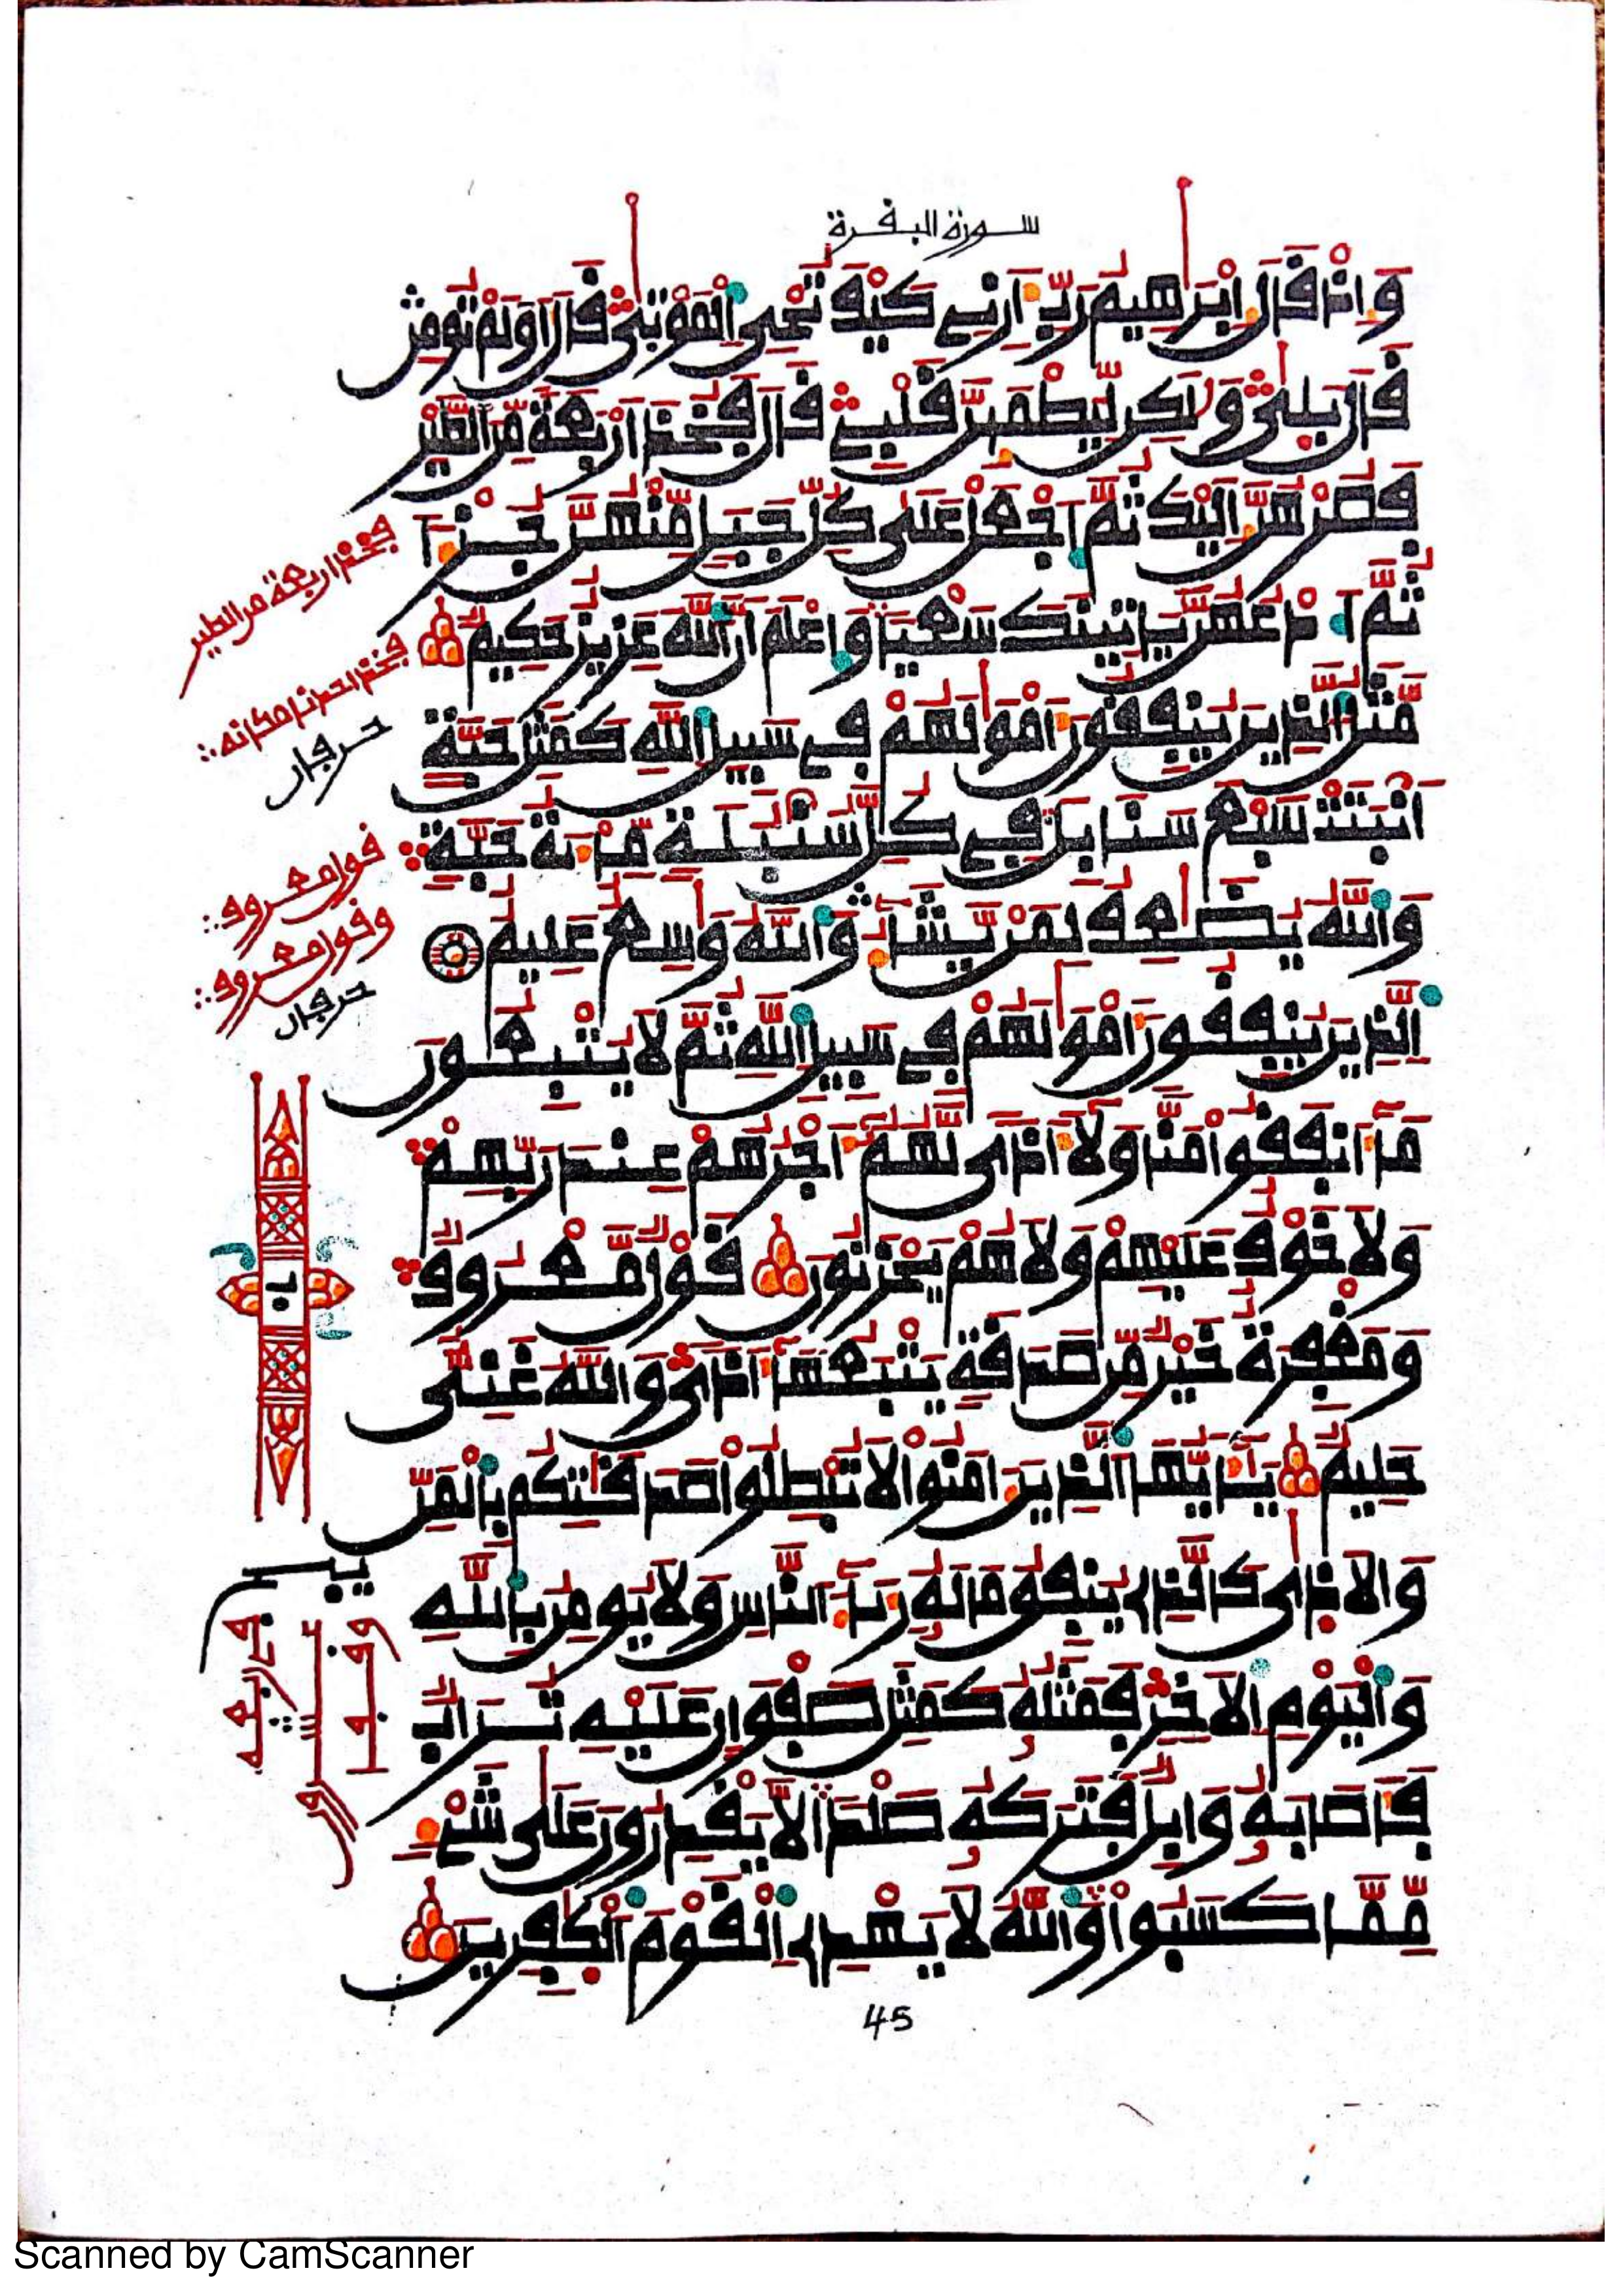 سورة البقرة
وَإِذْ قَالَ إِبْرَٰهِيمُ رَبِّ أَرِنِے كَيْفَ تُحْيِ اِلْمَوْتَىٰ قَالَ أَوَلَمْ تُومِن
قَالَ بَلَىٰ وَلَٰكِن لِّيَطْمَئِنَّ قَلْبِے قَالَ فَخُذْ أَرْبَعَةً مِّنَ اَلطَّيْرِ
فَصُرْهُنَّ إِلَيْكَ ثُمَّ اَجْعَلْ عَلَىٰ كُلِّ جَبَلٍ مِّنْهُنَّ جُزْءاً
ثُمَّ اَدْعُهُنَّ يَاتِينَكَ سَعْياً وَاعْلَمَ اَنَّ اَللَّهَ عَزِيزٌ حَكِيمٌ
مَّثَلُ الذِينَ يُنفِقُونَ أَمْوَٰلَهُمْ فِے سَبِيلِ اِللَّهِ كَمَثَلِ حَبَّةٍ
أَنۢبَتَتْ سَبْعَ سَنَابِلَ فِے كُلِّ سُنۢبُلَةٍ مِّاْئَةُ حَبَّةٍ
وَاللَّهُ يُضَٰعِفُ لِمَنْ يَّشَآءُ وَاللَّهُ وَٰسِعٌ عَلِيمٌ
اَلذِينَ يُنفِقُونَ أَمْوَٰلَهُمْ فِے سَبِيلِ اِللَّهِ ثُمَّ لَا يُتْبِعُونَ
مَآ أَنفَقُواْ مَنّاً وَلَآ أَذىً لَّهُمُۥٓ أَجْرُهُمْ عِندَ رَبِّهِمْ
وَلَا خَوْفٌ عَلَيْهِمْ وَلَا هُمْ يَحْزَنُونَ قَوْلٌ مَّعْرُوفٌ
وَمَغْفِرَةٌ خَيْرٌ مِّن صَدَقَةٍ يَتْبَعُهَآ أَذىً وَاللَّهُ غَنِيٌّ
حَلِيمٌ يَٰٓأَيُّهَا اَلذِينَ ءَامَنُواْ لَا تُبْطِلُواْ صَدَقَٰتِكُم بِالْمَنِّ
وَالَاذَىٰ كَالذِے يُنفِقُ مَالَهُۥ رِئَآءَ اَلنَّاسِ وَلَا يُومِنُ بِاللَّهِ
وَالْيَوْمِ اِلَاخِرِ فَمَثَلُهُۥ كَمَثَلِ صَفْوَانٍ عَلَيْهِ تُرَابٌ
فَأَصَابَهُۥ وَابِلٌ فَتَرَكَهُۥ صَلْداً لَّا يَقْدِرُونَ عَلَىٰ شَےْءٍ
مِّمَّا كَسَبُواْ وَاللَّهُ لَا يَهْدِے اِلْقَوْمَ اَلْكَٰفِرِينَ
فخذ اربعة من الطير
فخذ احدنا مكانه
حرفان
قولا معروفا
وقول معروف
حرفان
45
Scanned by CamScanner